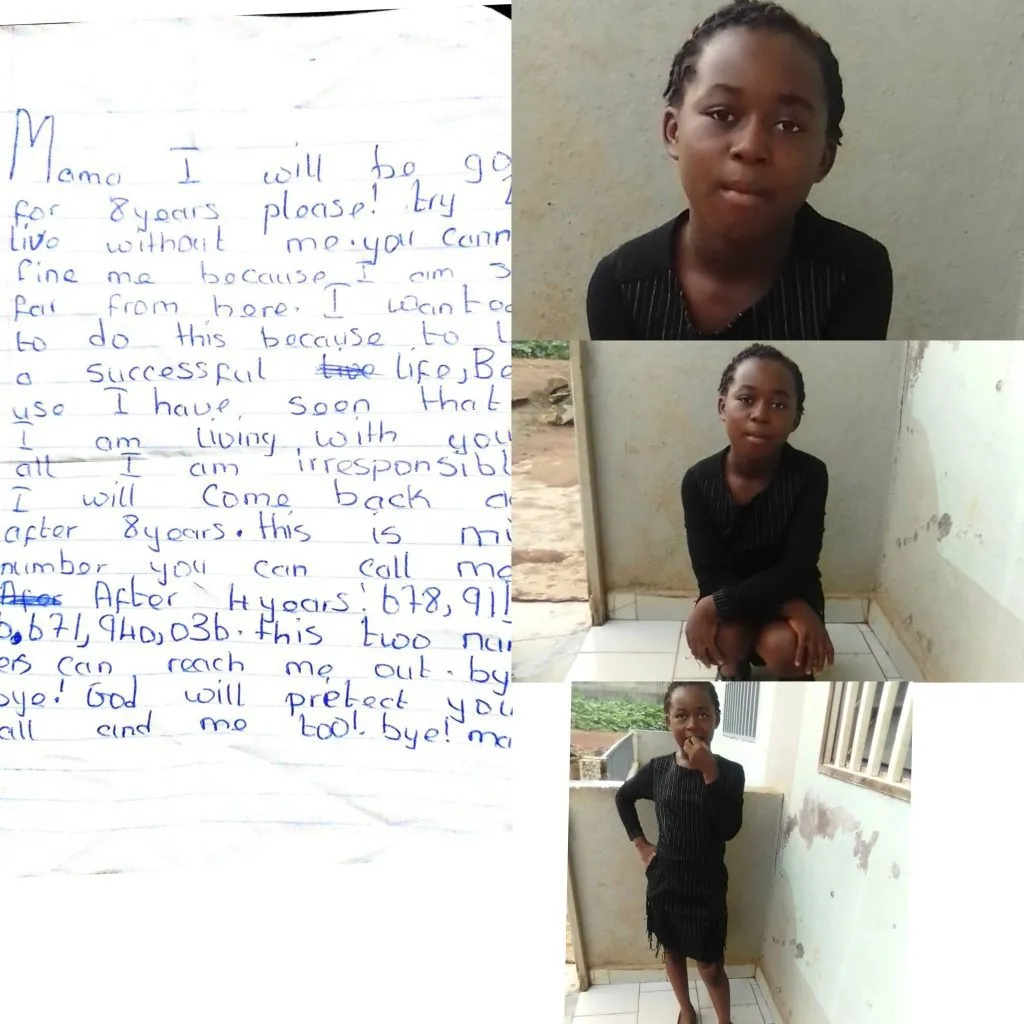 Mama I will be go
for 8years please! try
live without me. you cann
fine me because I am s
far from here. I wanted
to do this because to l
a successful live life, Be
use I have, seen that
I am living with you
all I am irresponsibl
I will come back a
after 8years. this is mi
number you can call me
After After 4years: 678,911
0,671,940,036. this two num
ers can reach me out. by
bye! God will pretect you
all and me too! bye! ma